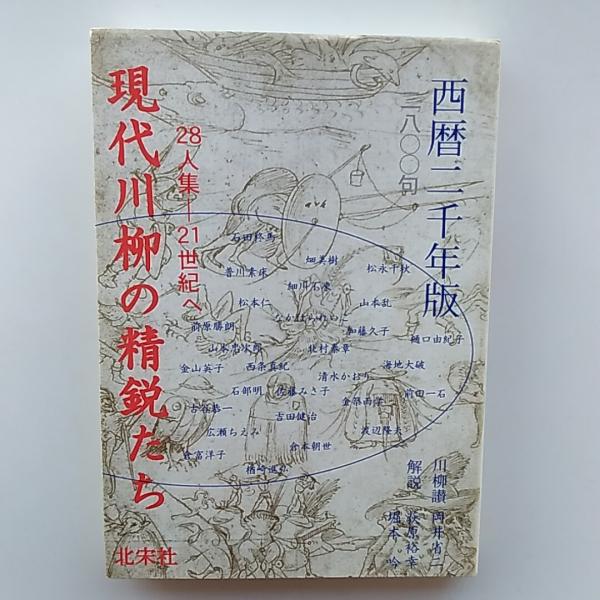 西暦二千年版
二八〇〇句
現代川柳の精鋭たち
28人集―21世紀へ
石田柊馬
畑美樹
松永千秋
普川素床
細川不凍
松本仁
山本乱
なかはられいこ
前原勝朗
加藤久子
樋口由紀子
山本忠次郎
北村泰章
金山英子
西条真紀
海地大破
清水かおり
石部明
佐藤みさ子
前田一石
古谷恭一
金築雨学
吉田健治
広瀬ちえみ
渡辺隆夫
倉本朝世
倉富洋子
楢崎進弘
川柳讃 岡井省二
解説 荻原裕幸
堀本 吟
北宋社